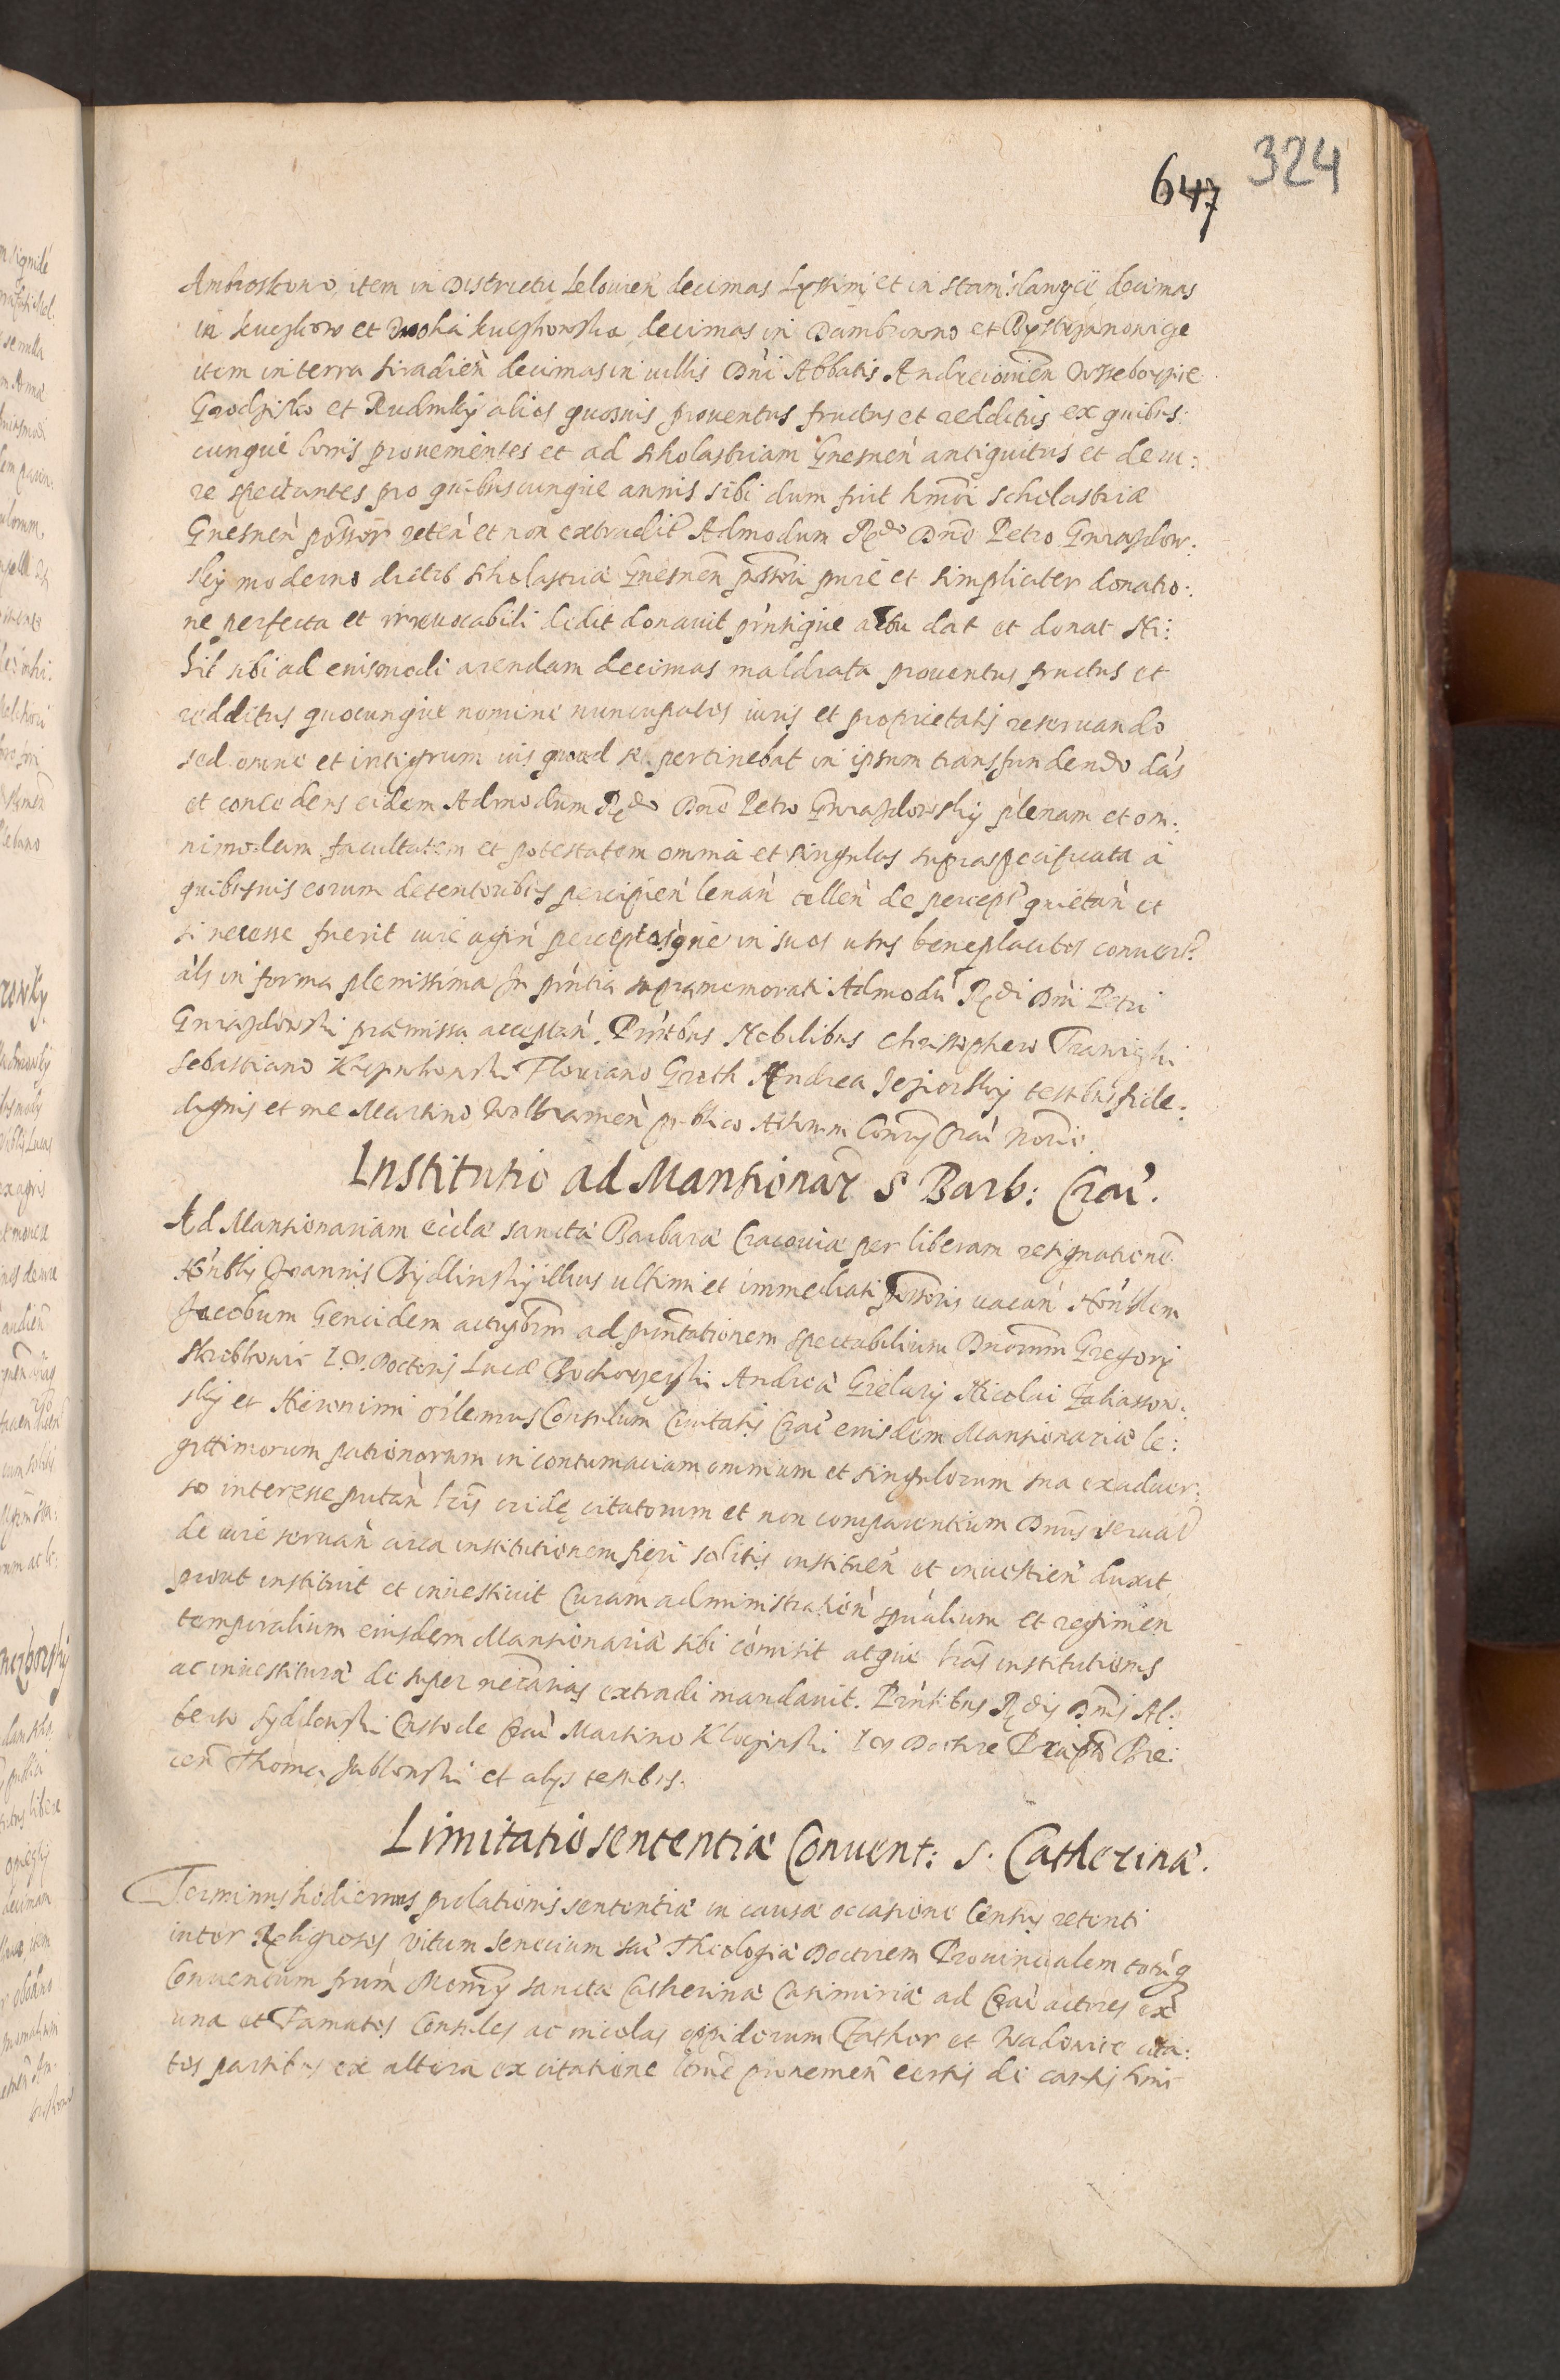 647 324
Ambroskowo, item in Districtu Lelouien decimas Lysiny et in Stanislawycze decimas
in Kuczkow et Wolia Kuczkowska decimas in Dambrowno et Bystrzanowicze
item in terra Siradien decimas in uillis Dni Abbatis Andreiouien Wsseborzicze
Grodzisko et Rudniky alios quosuis prouentus fructus et redditus ex quibus:
cunque bonis prouenientes et ad scholastriam Gnesnen antiquitus et de iu:
re spectantes pro quibuscunque annis sibi dum fuit hmoi scholastriæ
Gnesnen possor reten et non extradit Admodum Rdo Dno Petro Gniazdow:
sky moderno dictæ scholastriæ Gnesnen possori pure et simpliciter donatio:
ne perfecta et irreuocabili dedit donauit pntique actu dat et donat Ni:
hil sibi ad eiusmodi arendam decimas maldrata prouentus fructus et
redditus quocunque nomine nuncupatos iuris et proprietatis reseruando
sed omne et integrum ius quod se pertinebat in ipsum transfundendo dās
et concedens eidem Admodum Rdo Dno Petro Gniazdowsky plenam et om:
nimodam facultatem et potestatem omnia et singulas supraspecificata à
quibusuis eorum detentoribus percipien leuan tollen de percept quietan et
si necesse fuerit iure agen perceptasque in suos usus beneplacitos conuert
als in forma plenissima In pntia supramemorati Admodū Rdi Dni Petri
Gniazdowski præmissa acceptan. Pntibus Nobilibus Christophero Trawinski
Sebastiano Floriano Groth Andrea Jeziorsky testibus fide:
dignis et me Martino Wolbramen publico Actorum Conry Crac Norio.
Institutio ad Mansionar S Barb: Crac.
Ad Mansionariam ecclæ sanctæ Barbaræ Cracouiæ per liberam resignatione
Honblis Joannis Bydlinsky illius ultimi et immediati possoris uacan Honblem
Jacobum Gencidem ad pntationem spectabilium Dnorum Gregorij
Skrobkowic I. V. Doctoris Lucæ Andreæ Grelarij Nicolai Zaliasow:
sky et Hieronimi Consulum Ciuitatis Crac eiusdem Mansionariæ le:
gittimorum patronorum in contumaciam omnium et singulorum sua ex aduer:
so interesse putan lris cridę citatorum et non comparentium Dnus seruat
de iure seruan circa institutionem fieri solitis instituen et inuestien duxit
prout instituit et inuestiuit Curam administration spualium et regimen
temporalium eiusdem Mansionariæ sibi comisit atque lras institutionis
ac inuestituræ de super necarias extradi mandauit. Pntibus Rdis Dnis Al:
berto Sydlowski Custode Crac Martino Kloczinski I V Doctore Præpto Bie:
cen Thoma Jablonski et alys testibus.
Limitatio sententiæ Conuent: S. Catherinæ.
Terminus hodiernus prolationis sententiæ in causa occasione Census retenti
inter Religiosos Vitum Senecium sac Theologiæ Doctorem Prouincialem totūq
Conuentum frum Monry sanctæ Catherinæ Casimiriæ ad Crac actores ex
una et Famatos Consules ac incolas oppidorum Zathor et Wadowice cita:
tos partibus ex altera ex citatione lime prouenien certis de causis hinc